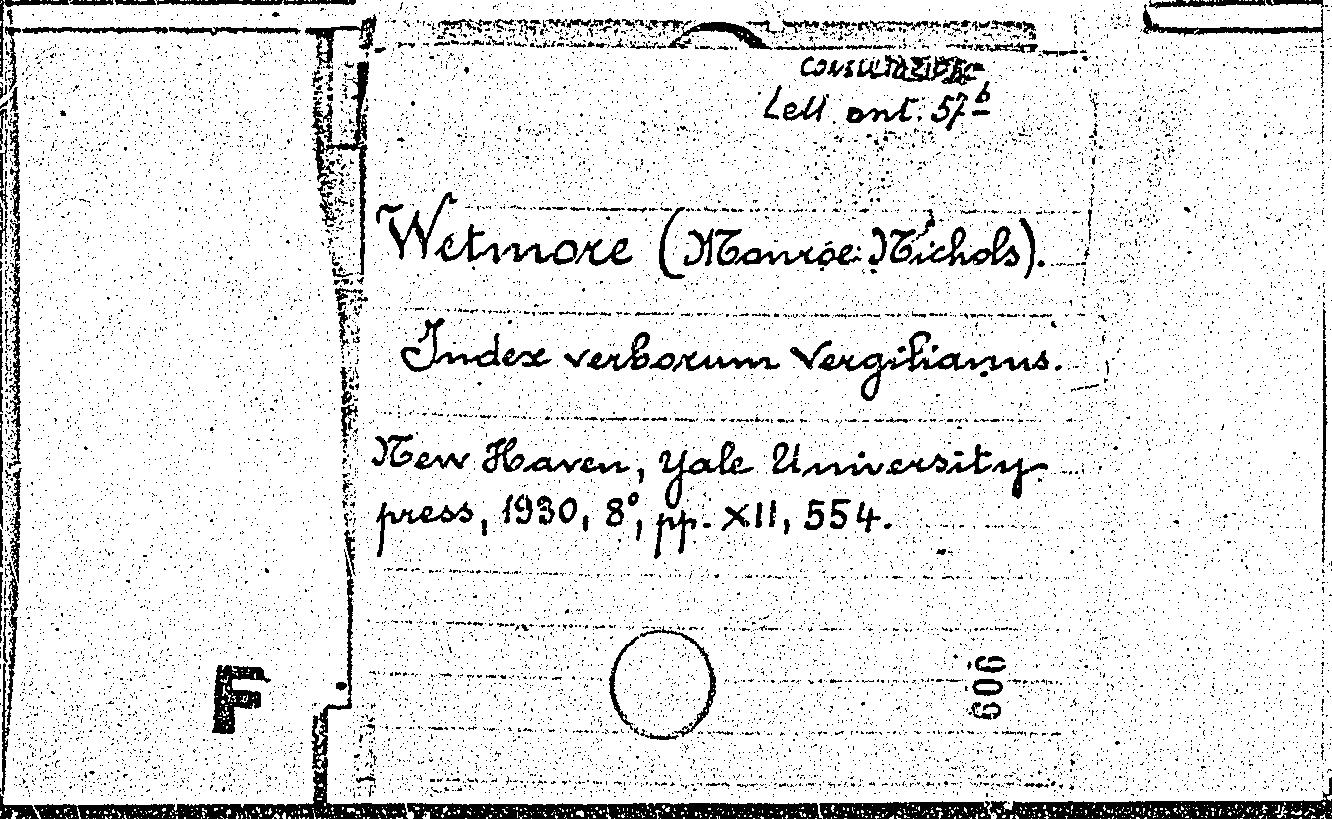 CONSULTAZIONE
Lett. ant. 57 b
Wetmore (Monroe Nichols).
Index verborum Vergilianus.
New Haven, Yale University
press, 1930, 8°, pp. XII, 554.
F
606